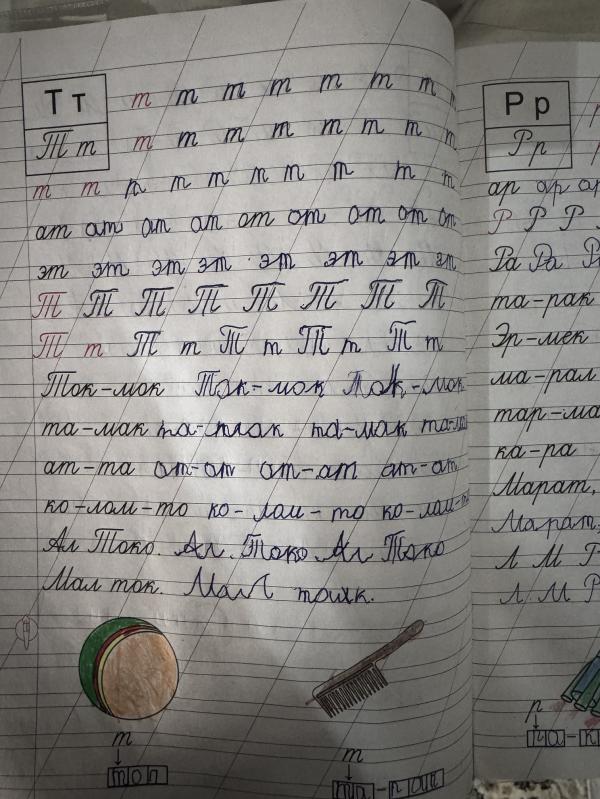 Т т т т т т т т т
Т т т т т т т т т т
т т т т т т т т т
ат ат ат ат ат ат ат ат ат
эт эт эт эт эт эт эт эт
Т Т Т Т Т Т Т Т
Т т Т т Т т Т т Т т
Ток-мок Ток-мок Ток-мок
та-мак та-мак та-мак
ат-та ат-ат ат-ат ат-ат
ко-лом-то ко-лом-то ко-лом-т
Ал Токо. Ал Токо Ал Токо
Мал ток. Мал
т
топ
т
та-рак
Р р
Р р
ар ар ар
Р Р Р
Ра Ра
та-рак
Эр-мек
ма-рал
тар-ма
ка-ра
Марат,
Марат,
Л М Р
Л М Р
р